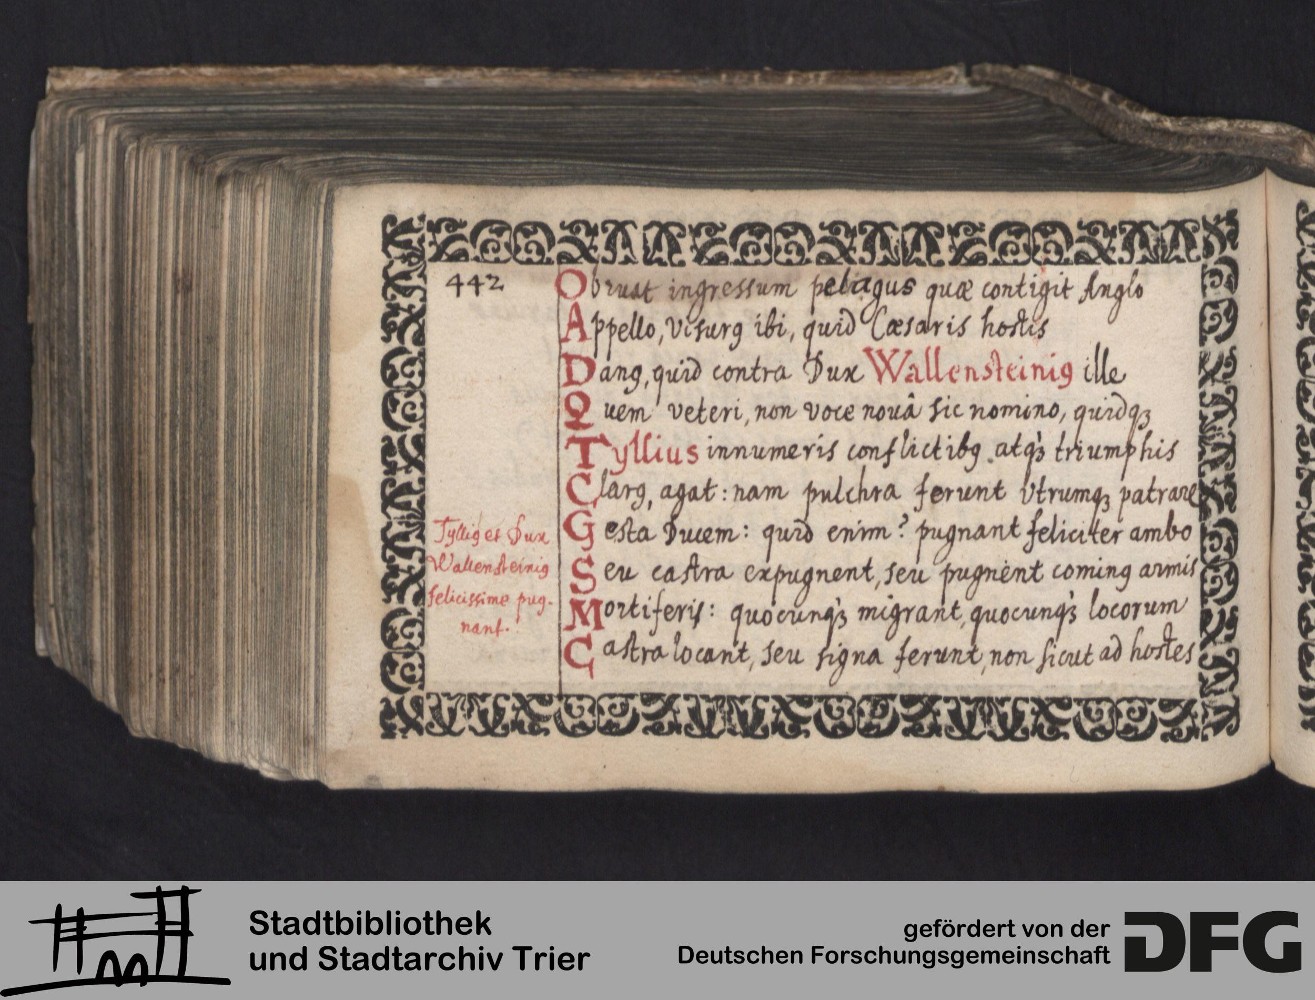 442
Obruat ingressum pelagus quæ contigit Anglo
Appello, Visurg ibi, quid Cæsaris hostis
Dang, quid contra Dux Wallensteinig ille
Quem veteri, non voce nouâ sic nomino, quidqꝫ
Tyllius innumeris conflictibg atqꝫ triumphis
Clarg, agat: nam pulchra ferunt Vtrumqꝫ patrare
Gesta Ducem: quid enim? pugnant feliciter ambo
Seu castra expugnent, seu pugnent coming armis
Mortiferis: quocunqꝫ migrant, quocunqꝫ locorum
Castra locant, seu signa ferunt, non sicut ad hostes
Tyllig et Dux
Wallensteinig
felicissime pug-
nant.
Stadtbibliothek
und Stadtarchiv Trier
gefördert von der
Deutschen Forschungsgemeinschaft
DFG